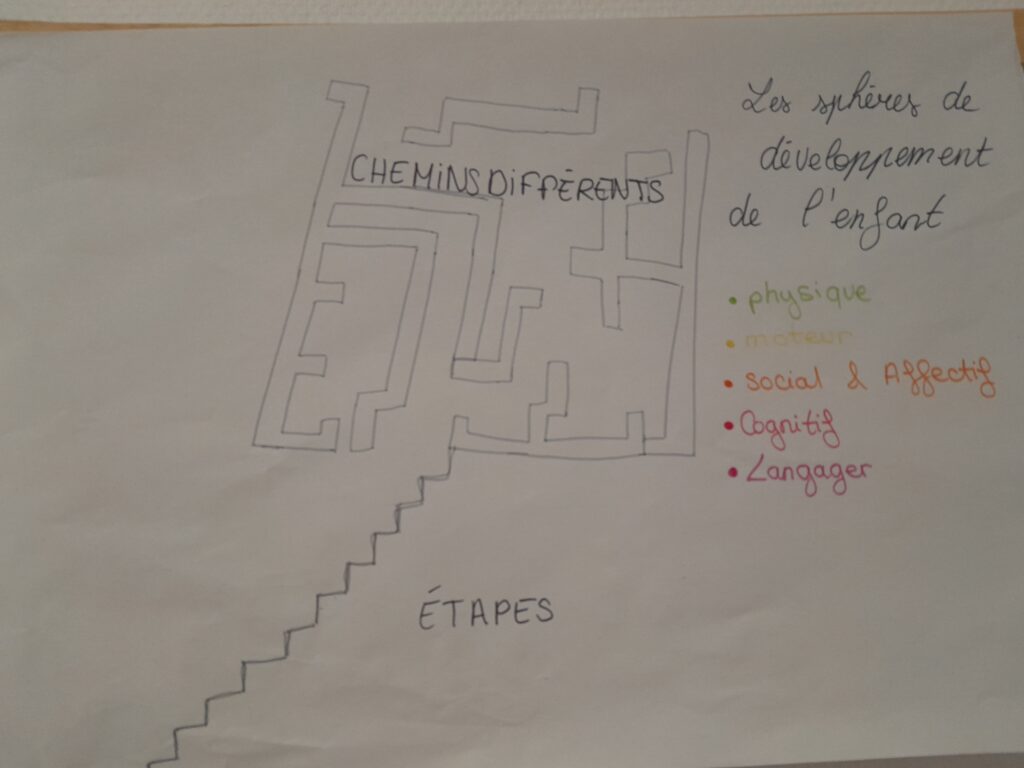 CHEMiNS DiFFÉRENTS
Les sphères de
développement
de l'enfant
• physique
• moteur
• social & Affectif
• Cognitif
• Langager
ÉTAPES